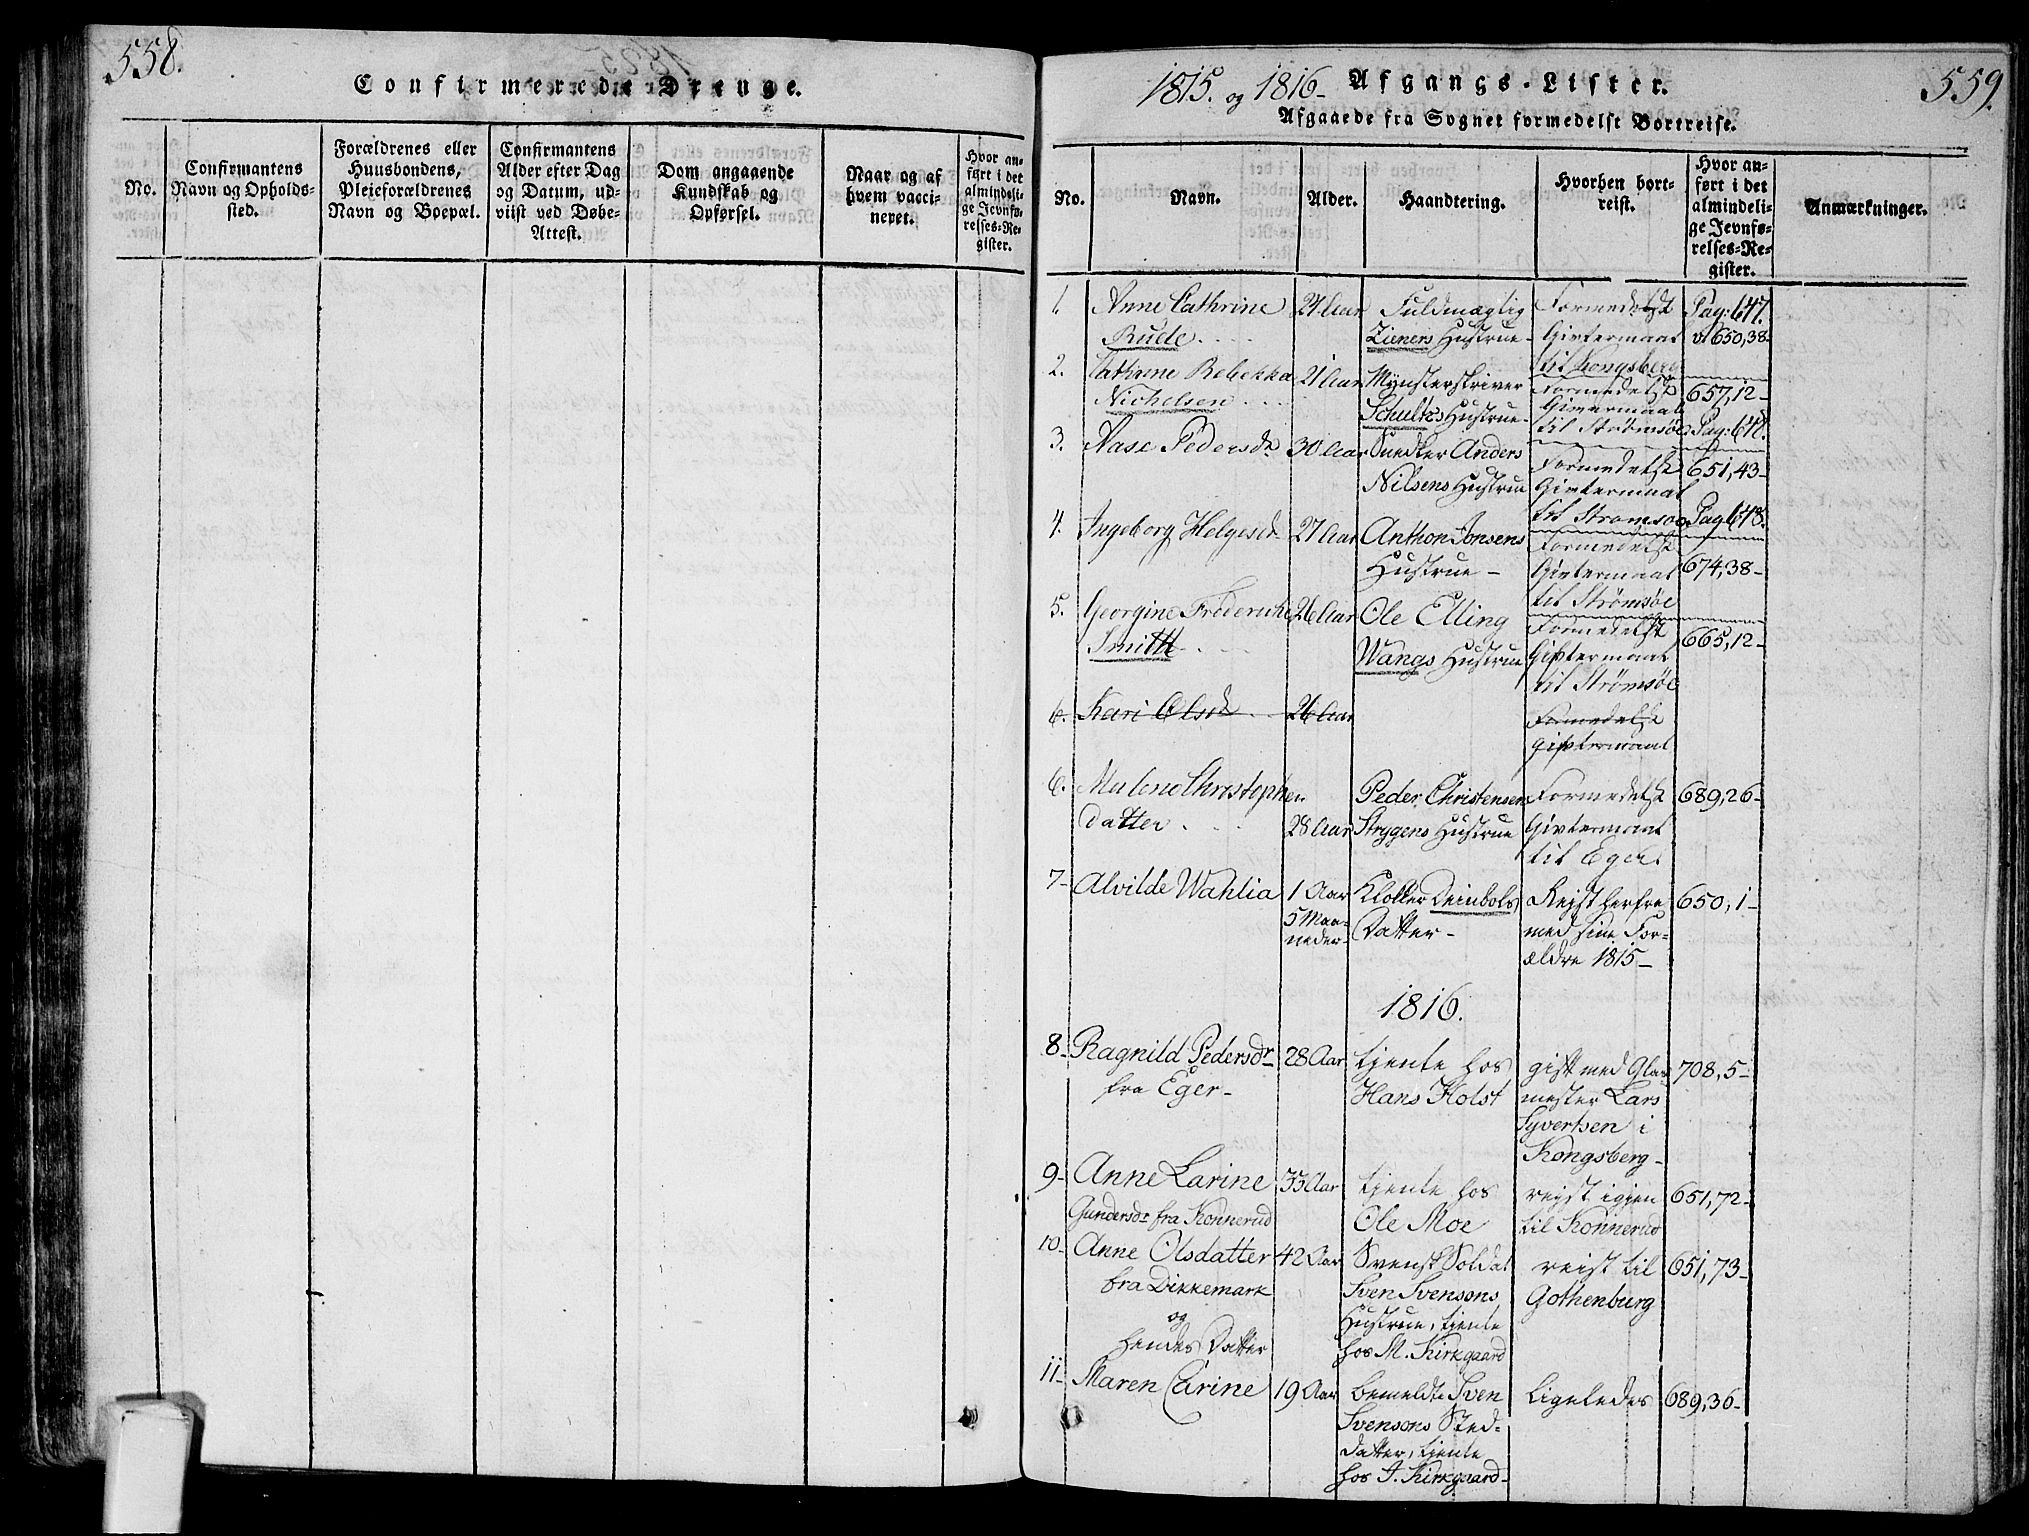 558.
Confirmerede Drenge.
No.
Confirmantens
Navn og Opholds-
sted.
Forældrenes eller
Huusbondens,
Plejeforældrenes
Navn og Boepæl.
Confirmantens
Alder efter Dag
og Datum, ud-
viist ved Døbe-
Attest.
Dom angaaende
Kundskab og
Opførsel.
Naar og af
hvem vacci-
neret.
Hvor an-
ført i det
almindeli-
ge Jevnfø-
relses-Re-
gister.
1815. og 1816-
Afgangs-Lister.
559.
Afgaaede fra Sognet formedelst Bortreise.
No.
Navn.
Alder.
Haandtering.
Hvorhen bort-
reist.
Hvor an-
ført i det
almindeli-
ge Jevnfø-
relses-Re-
gister.
Anmærkninger.
1.
Anne Cathrine
Rude
Fuldmægtig
Zieners Hustrue-
Formedelst
Givtermaal
til Kongsberg
Pag: 647.
650,38-
2.
Cathrine Rebekka
Nichelsen
21 Aar
Mynsterskriver
Schultzs Hustrue-
Formedelst
Givtermaal
til Strømsøe
657,12-
3.
Aase Pedersdr
30 Aar
Snedker Anders
Nilsens Hustrue
Formedelst
Givtermaal
til Strømsøe
Pag: 648.
651,43-
4.
Ingeborg Helgesdr
27 Aar
Anthon Jonsens
Hustrue-
Formedelst
Givtermaal
til Strømsøe
Pag 648.
674,38-
5.
Georgine Frederiche
Smith
26 Aar
Ole Elling
Wangs Hustrue
Formedelst
Giftermaal
til Strømsøe
665,12-
6.
Kari Olsdr
26 Aar
Formedelst
Giftermaal
6.
Malene Christophen
datter
28 Aar
Peder Christensen
Strygens Hustrue
Formedelst
Givtermaal
til Eger.
689,26-
7-
Alvilde Wahlia
1 Aar
5 Maa-
neder-
Klokker Deinbols
Datter-
Rejst herfra
med sine For-
ældre 1815-
650,1-
1816.
8-
Ragnild Pedersdr
fra Eger-
28 Aar
tjente hos
Hans Holst
gift med Glar
mester Lars
Syvertsen i
Kongsberg-
708,5-
9-
Anne Larine
Gundersdr fra Konnerud
33 Aar
tjente hos
Ole Moe
rejst igjen
til Konnerud
651,72-
10-
Anne Olsdatter
fra Dikkemark
og
hendes Datter
42 Aar
Svensk Soldat
Sven Svensons
Hustrue, tjente
hos M. Kirkgaard
reist til
Gothenburg
651,73-
11-
Maren Carine
19 Aar
bemeldte Sven
Svensons Sted-
datter, tjente
hos J. Kirkgaard-
Ligeledes
689,36-